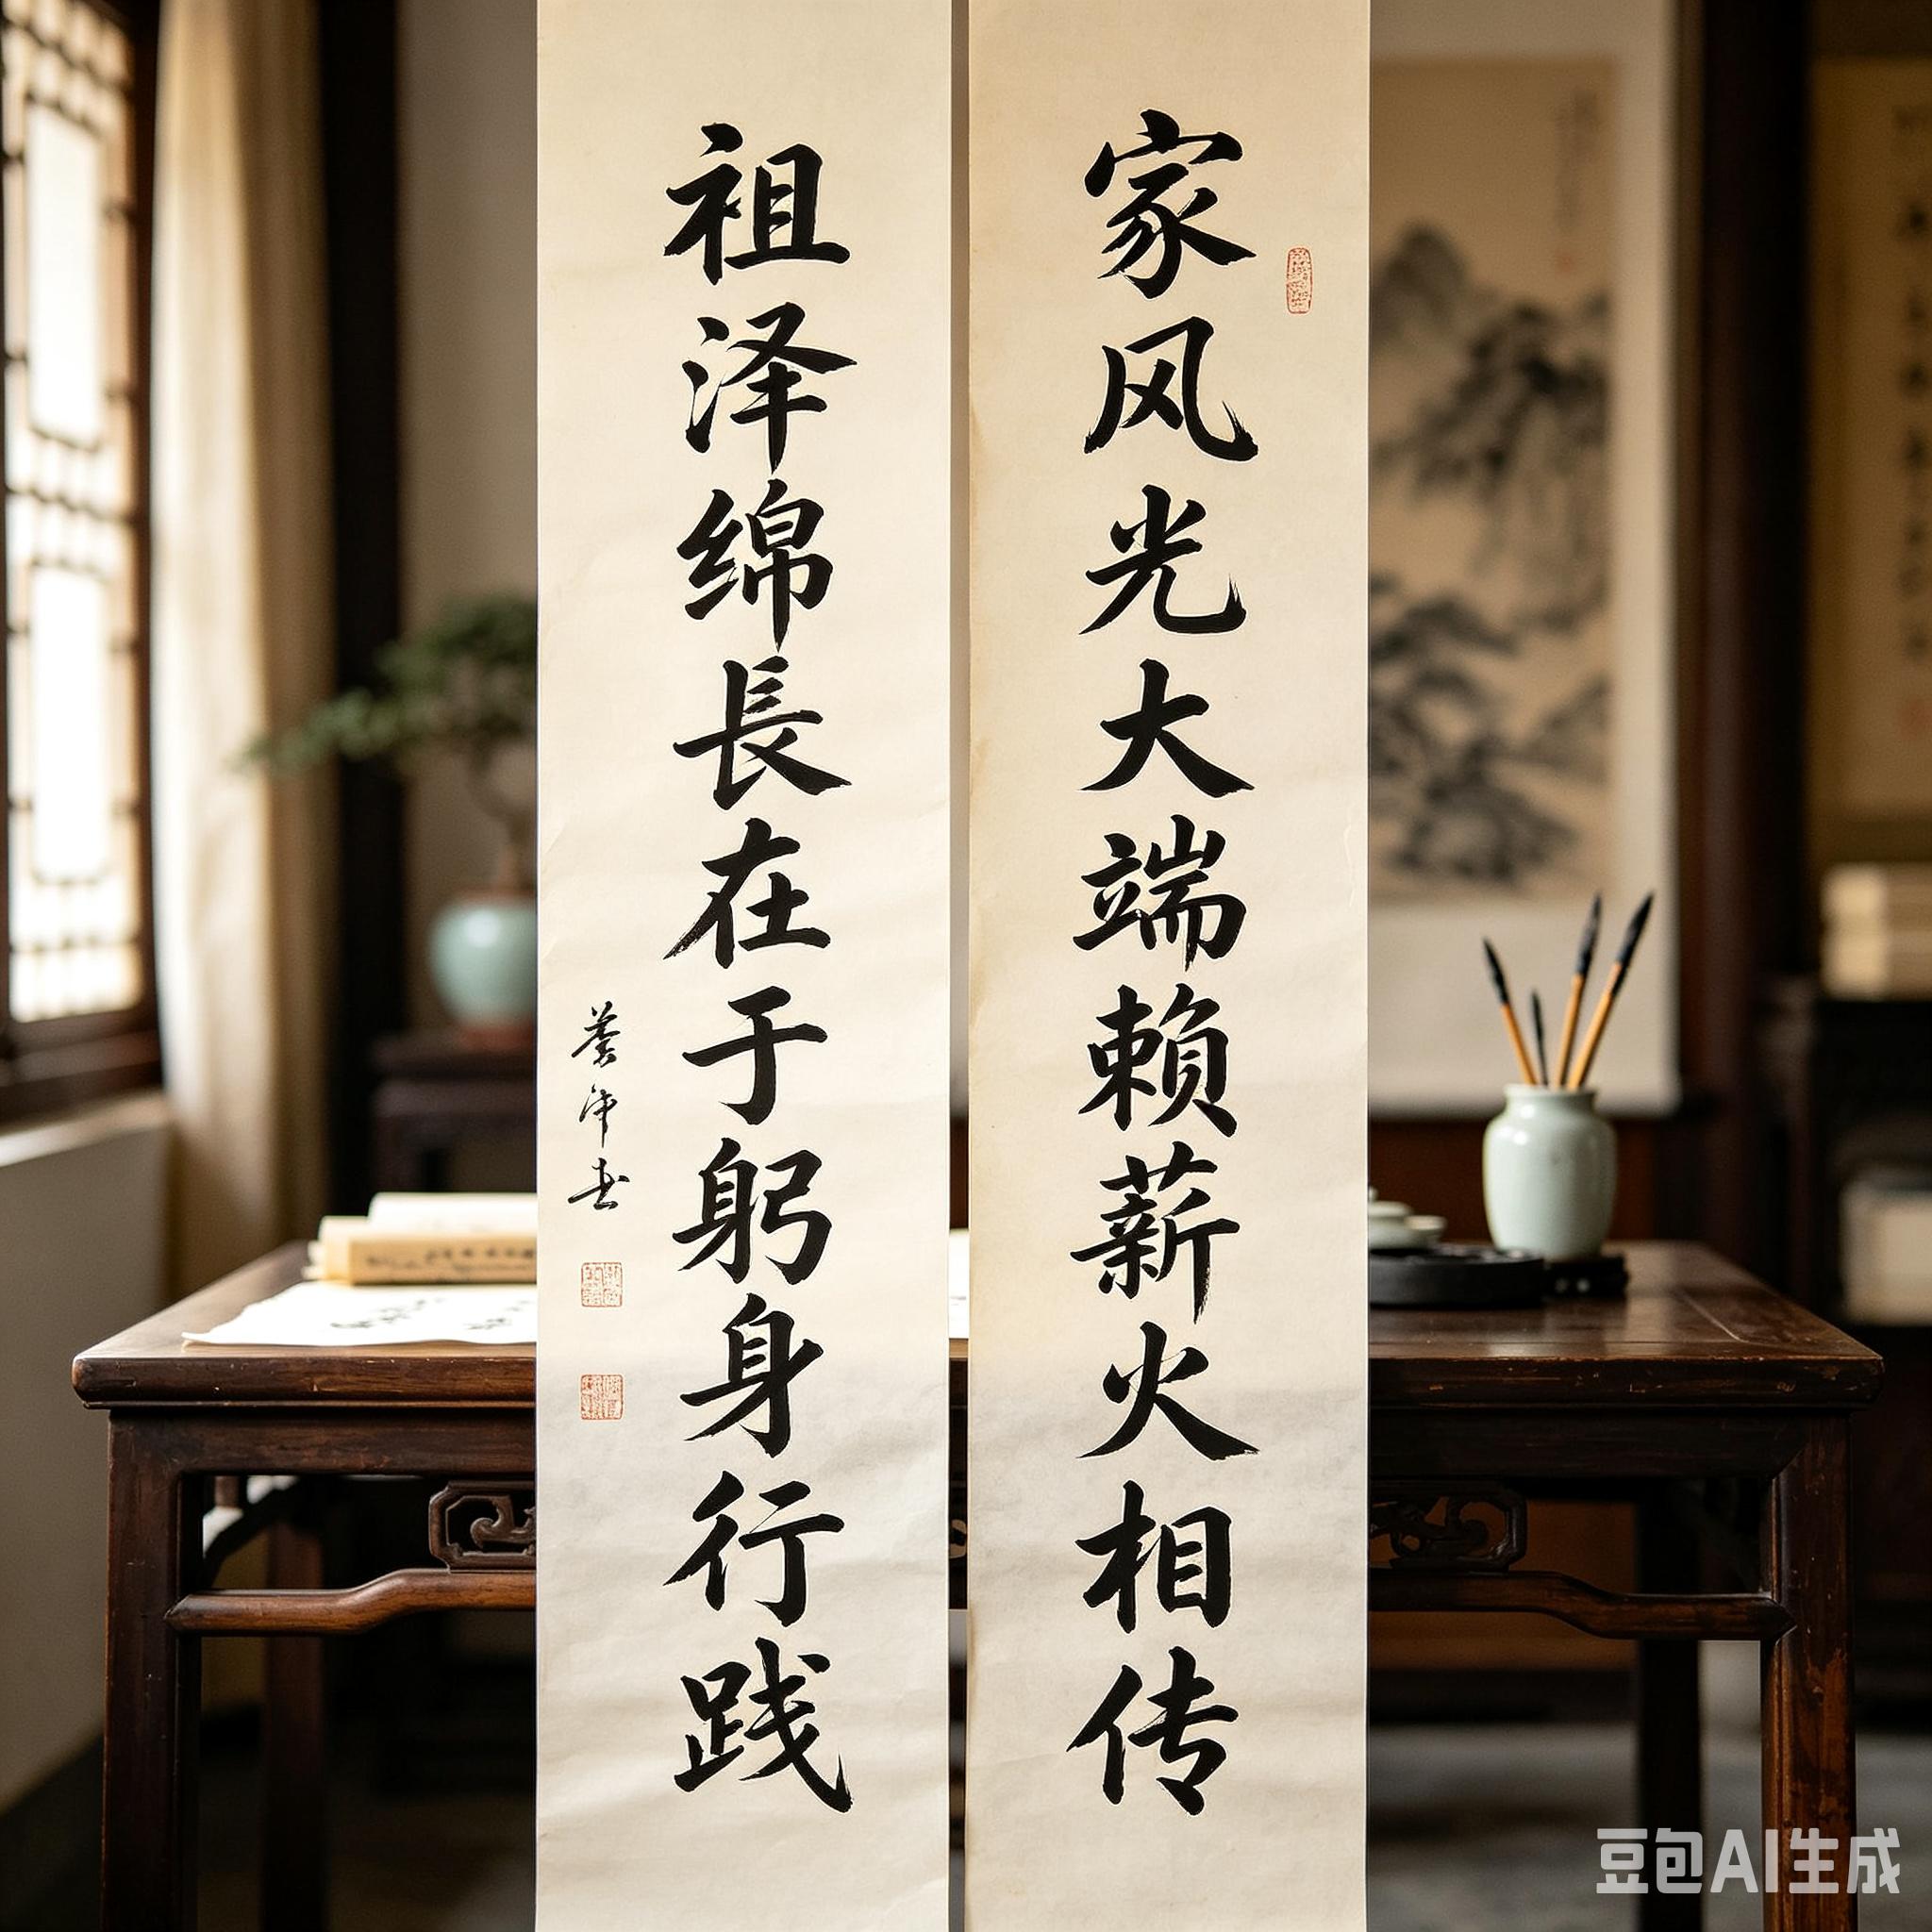 家风光大端赖薪火相传
祖泽绵長在于躬身行践
豆包AI生成